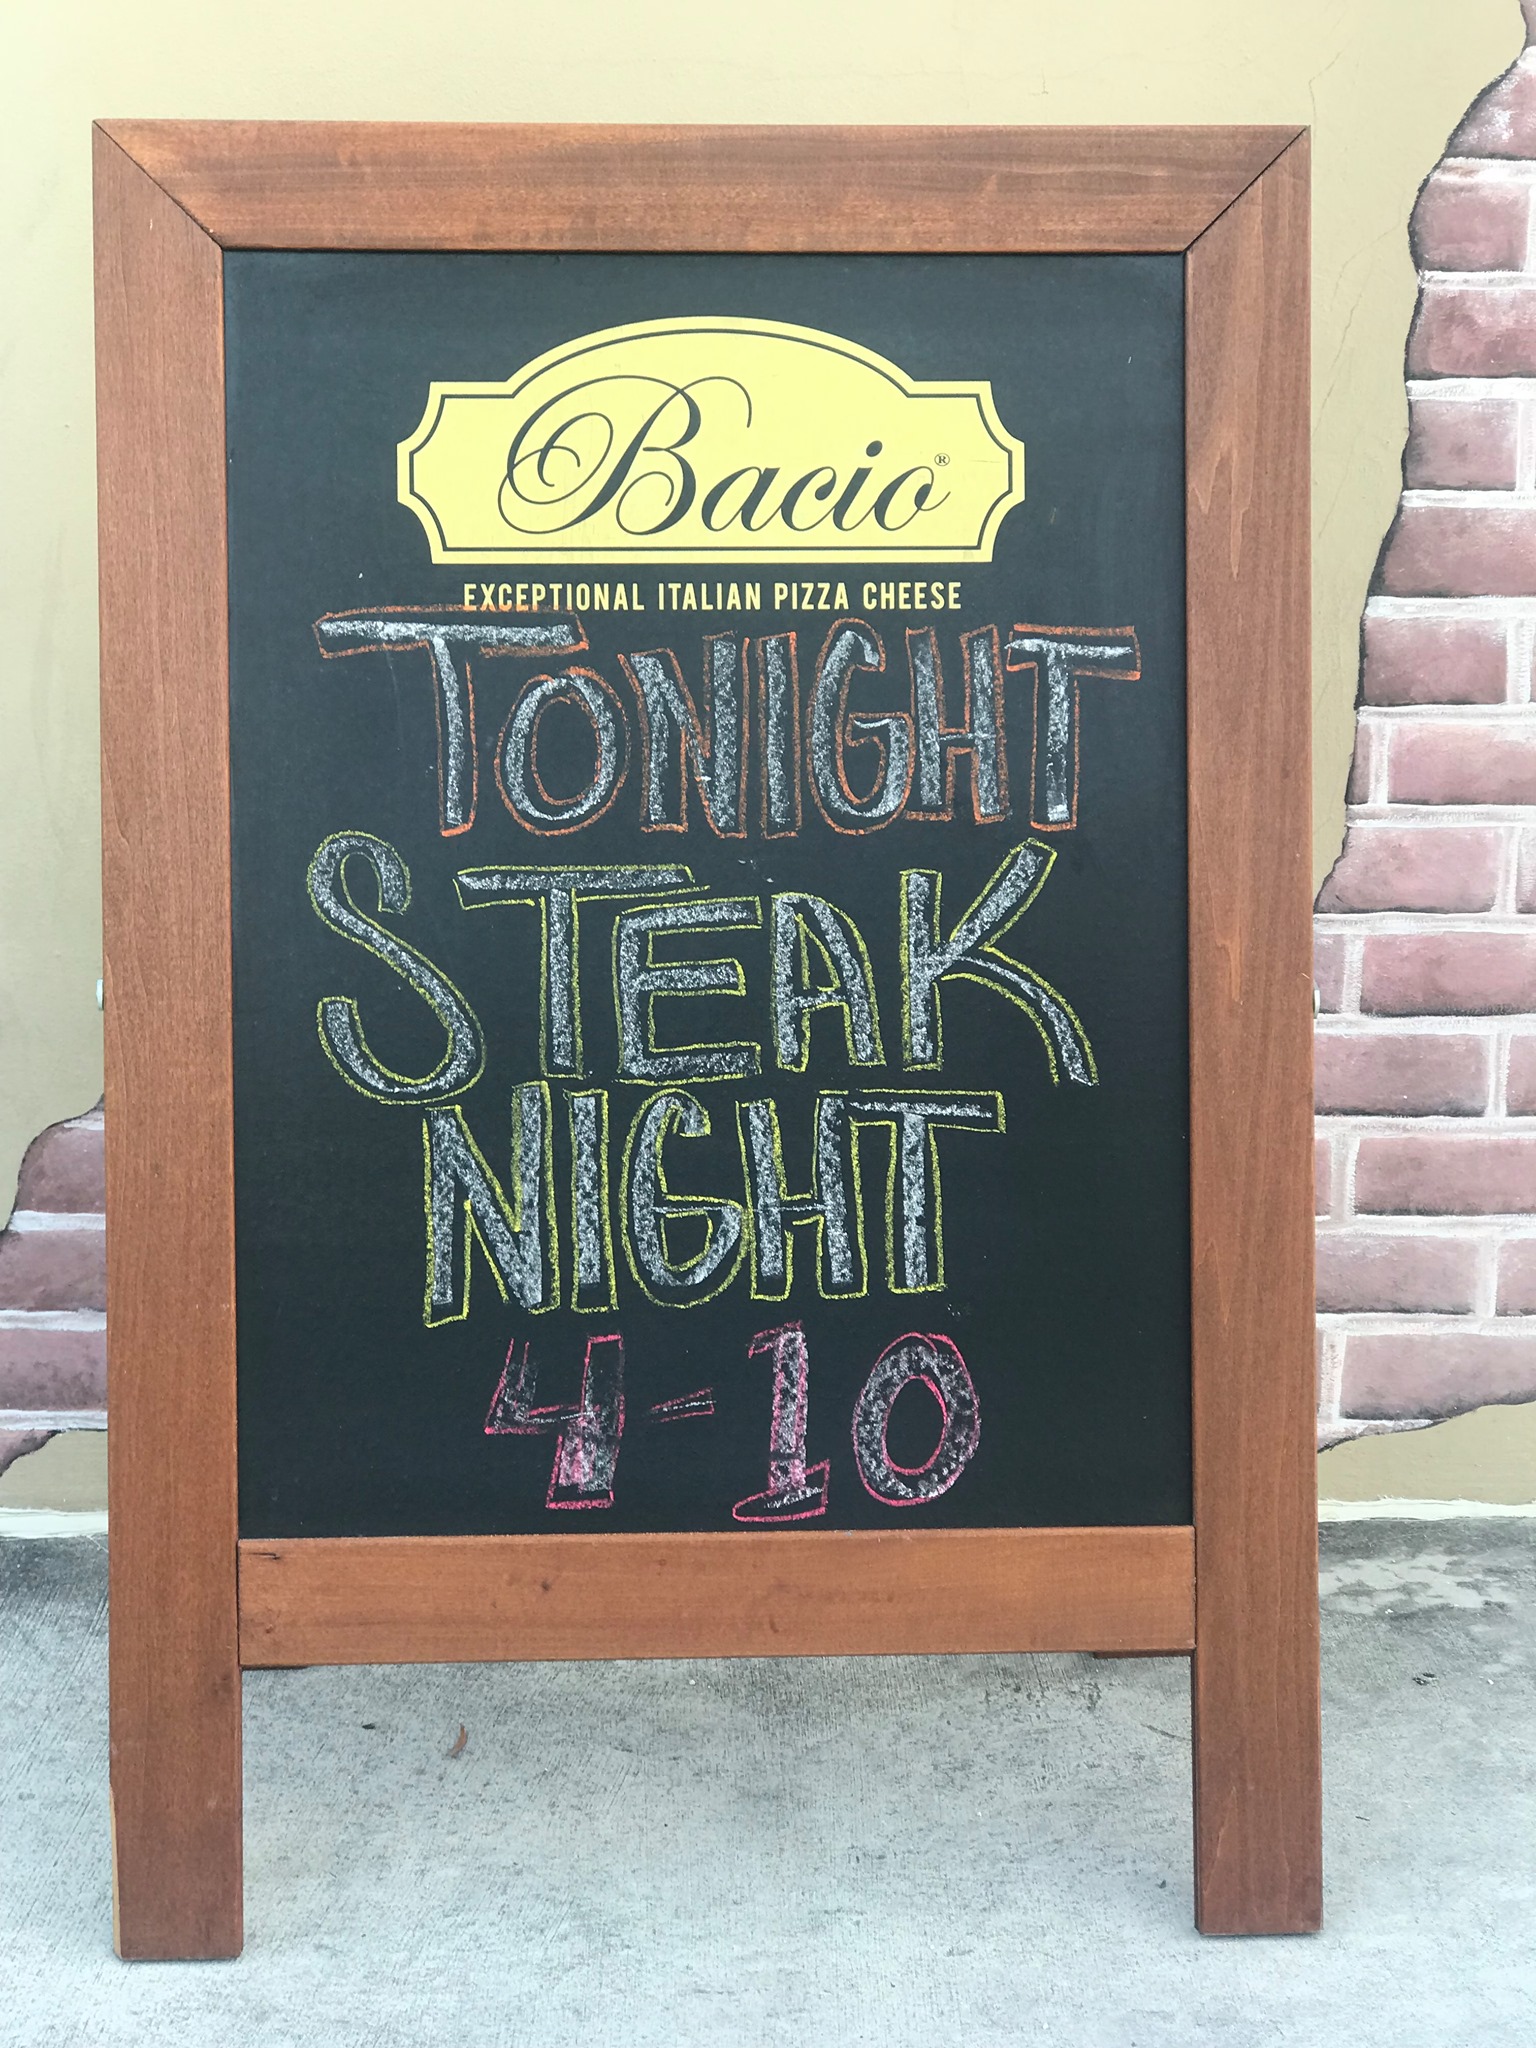 Bacio®
EXCEPTIONAL ITALIAN PIZZA CHEESE
TONIGHT
STEAK
NIGHT
4-10